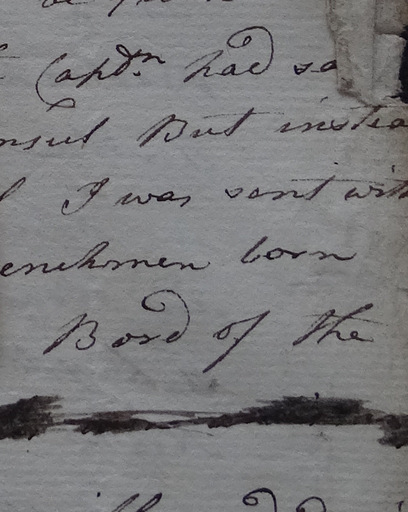 Captn had sa
nsul But instea
I was sent with
enchmen born
Bord of the